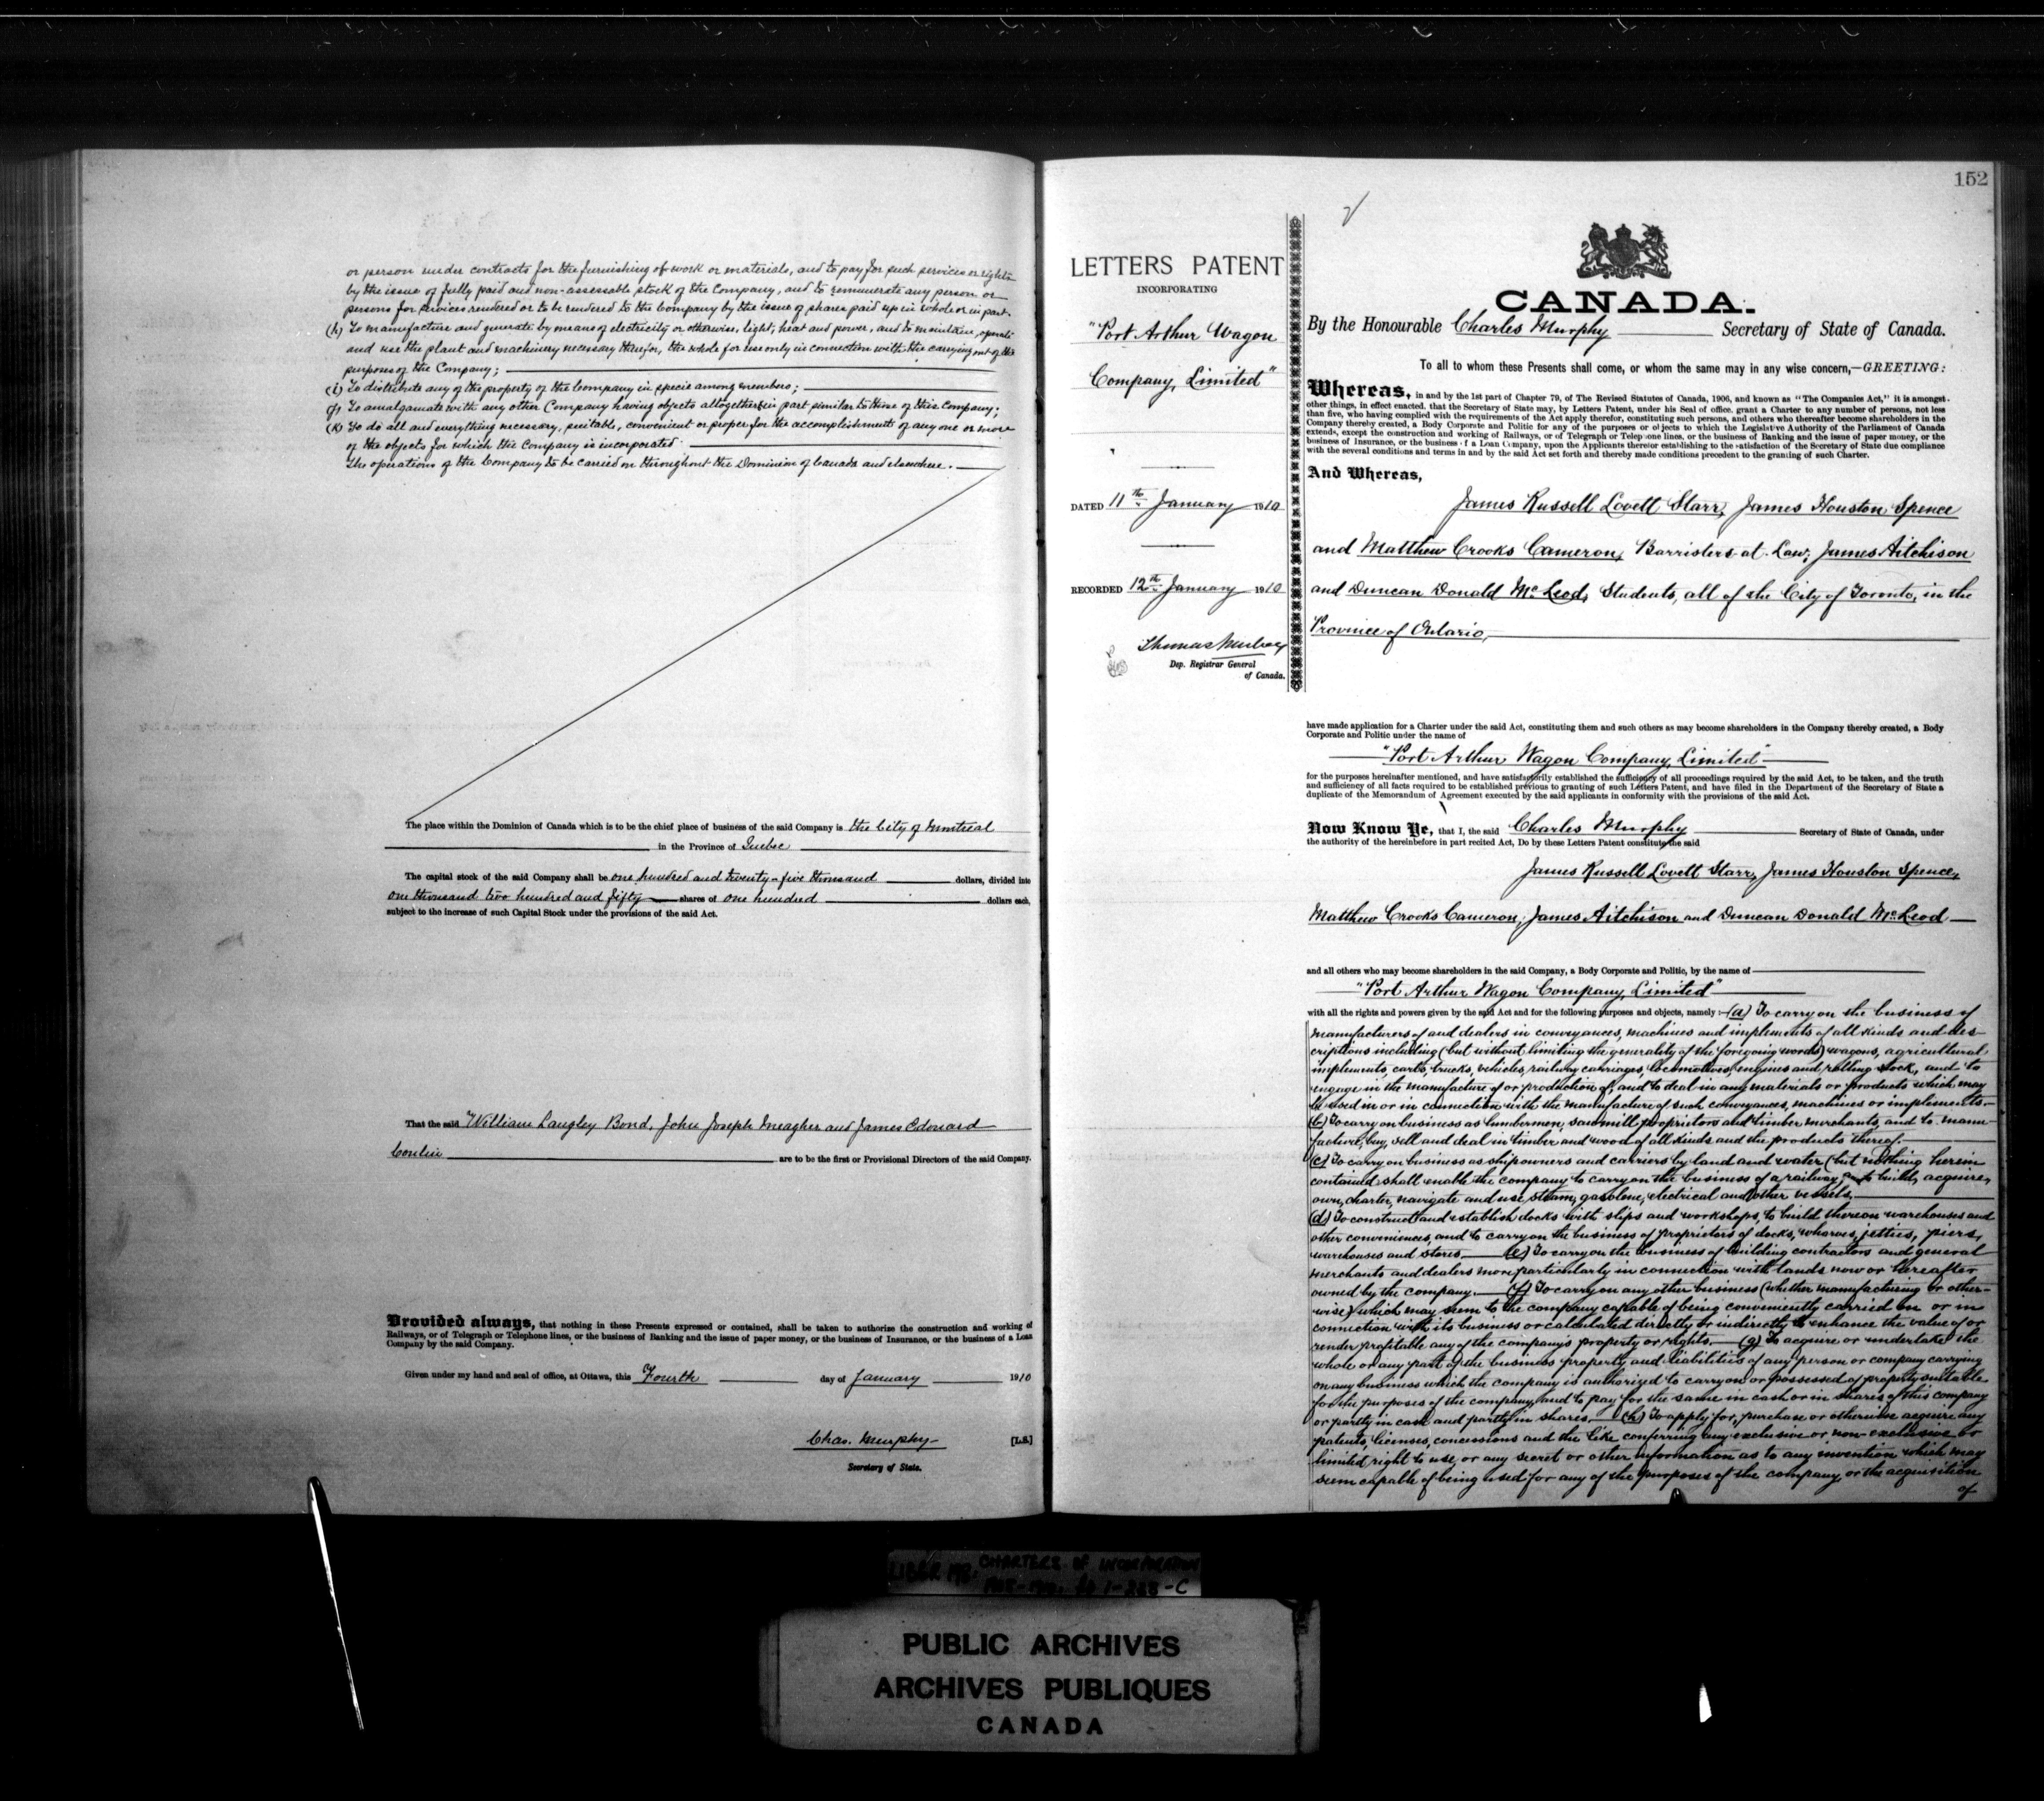 or person under contracts for the furnishing of work or materials, and to pay for such services or rights
by the issue of fully paid and non-assessable stock of the Company, and to remunerate any person or
persons for services rendered or to be rendered to the Company by the issue of shares paid up in whole or in part.
(h) To manufacture and generate by means of electricity or otherwise, light, heat and power, and to maintain, operate
and use the plant and machinery necessary therefor, the whole for use only in connection with the carrying out of the
purposes of the Company;
(i) To distribute any of the property of the Company in specie among members;
(j) To amalgamate with any other Company having objects altogether in part similar to those of this Company;
(k) To do all and everything necessary, suitable, convenient or proper for the accomplishment of any one or more
of the objects for which the Company is incorporated
The operations of the Company to be carried on throughout the Dominion of Canada and elsewhere.
The place within the Dominion of Canada which is to be the chief place of business of the said Company is the City of Montreal
in the Province of Quebec
The capital stock of the said Company shall be one hundred and twenty-five thousand dollars, divided into
one thousand two hundred and fifty shares of one hundred dollars each,
subject to the increase of such Capital Stock under the provisions of the said Act.
That the said William Langley Bond, John Joseph Meagher and James Edouard
Coulin are to be the first or Provisional Directors of the said Company.
Provided always, that nothing in these Presents expressed or contained, shall be taken to authorise the construction and working of
Railways, or of Telegraph or Telephone lines, or the business of Banking and the issue of paper money, or the business of Insurance, or the business of a Loan
Company by the said Company.
Given under my hand and seal of office, at Ottawa, this Fourth day of January 1910
Chas. Murphy [L.S.]
Secretary of State.
152
LETTERS PATENT
INCORPORATING
"Port Arthur Wagon
Company, Limited"
DATED 11th January 1910
RECORDED 12th January 1910
Thomas Mulvey
Dep. Registrar General
of Canada.
CANADA.
By the Honourable Charles Murphy Secretary of State of Canada.
To all to whom these Presents shall come, or whom the same may in any wise concern,—GREETING:
Whereas, in and by the 1st part of Chapter 79, of The Revised Statutes of Canada, 1906, and known as "The Companies Act," it is amongst
other things, in effect enacted, that the Secretary of State may, by Letters Patent, under his Seal of office, grant a Charter to any number of persons, not less
than five, who having complied with the requirements of the Act apply therefor, constituting such persons, and others who thereafter become shareholders in the
Company thereby created, a Body Corporate and Politic for any of the purposes or objects to which the Legislative Authority of the Parliament of Canada
extends, except the construction and working of Railways, or of Telegraph or Telephone lines, or the business of Banking and the issue of paper money, or the
business of Insurance, or the business of a Loan Company, upon the Applicants therefor establishing to the satisfaction of the Secretary of State due compliance
with the several conditions and terms in and by the said Act set forth and thereby made conditions precedent to the granting of such Charter.
And Whereas,
James Russell Lovett Starr, James Houston Spence
and Matthew Crooks Cameron, Barristers-at-Law; James Aitchison
and Duncan Donald McLeod, Students, all of the City of Toronto, in the
Province of Ontario,
have made application for a Charter under the said Act, constituting them and such others as may become shareholders in the Company thereby created, a Body
Corporate and Politic under the name of
"Port Arthur Wagon Company, Limited"
for the purposes hereinafter mentioned, and have satisfactorily established the sufficiency of all proceedings required by the said Act, to be taken, and the truth
and sufficiency of all facts required to be established previous to granting of such Letters Patent, and have filed in the Department of the Secretary of State a
duplicate of the Memorandum of Agreement executed by the said applicants in conformity with the provisions of the said Act.
Now Know Ye, that I, the said Charles Murphy Secretary of State of Canada, under
the authority of the hereinbefore in part recited Act, Do by these Letters Patent constitute the said
James Russell Lovett Starr, James Houston Spence,
Matthew Crooks Cameron, James Aitchison and Duncan Donald McLeod
and all others who may become shareholders in the said Company, a Body Corporate and Politic, by the name of
"Port Arthur Wagon Company, Limited"
with all the rights and powers given by the said Act and for the following purposes and objects, namely :—(a) To carry on the business of
manufacturers of and dealers in conveyances, machines and implements of all kinds and des-
criptions including (but without limiting the generality of the foregoing words) wagons, agricultural
implements, carts, trucks, vehicles, railway carriages, locomotives, engines and rolling stock, and to
engage in the manufacture of or production of, and to deal in any materials or products which may
be used in or in connection with the manufacture of such conveyances, machines or implements.
(b) To carry on business as lumbermen, sawmill proprietors and timber merchants, and to manu-
facture, buy, sell and deal in timber and wood of all kinds and the products thereof.
(c) To carry on business as shipowners and carriers by land and water (but nothing herein
contained shall enable the company to carry on the business of a railway) and to build, acquire,
own, charter, navigate and use steam, gasolene, electrical and other vessels.
(d) To construct and establish docks with slips and workshops, to build thereon warehouses and
other conveniences, and to carry on the business of proprietors of docks, wharves, jetties, piers,
warehouses and stores. (e) To carry on the business of building contractors and general
merchants and dealers more particularly in connection with lands now or hereafter
owned by the company. (f) To carry on any other business (whether manufacturing or other-
wise) which may seem to the company capable of being conveniently carried on or in
connection with its business or calculated directly or indirectly to enhance the value of or
render profitable any of the company's property or rights. (g) To acquire or undertake the
whole or any part of the business property and liabilities of any person or company carrying
on any business which the company is authorized to carry on or possessed of property suitable
for the purposes of the company, and to pay for the same in cash or in shares of this company
or partly in cash and partly in shares. (h) To apply for, purchase or otherwise acquire any
patents, licenses, concessions and the like conferring any exclusive or non-exclusive or
limited right to use or any secret or other information as to any invention which may
seem capable of being used for any of the purposes of the company or the acquisition
of
CHARTERS OF INCORPORATION
PUBLIC ARCHIVES
ARCHIVES PUBLIQUES
CANADA